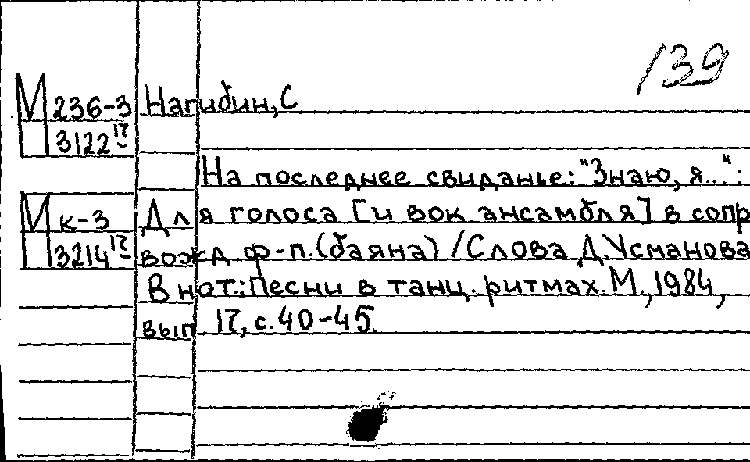 139
М 236-3 Нагибин, С
3122 17
На последнее свиданье: "Знаю, я...":
М к-3 Для голоса [и вок ансамбля] в сопр
3214 17 вожд ф-п. (баяна) / Слова Д. Усманова
В нот.: Песни в танц. ритмах. М., 1984,
вып 17, с. 40-45.